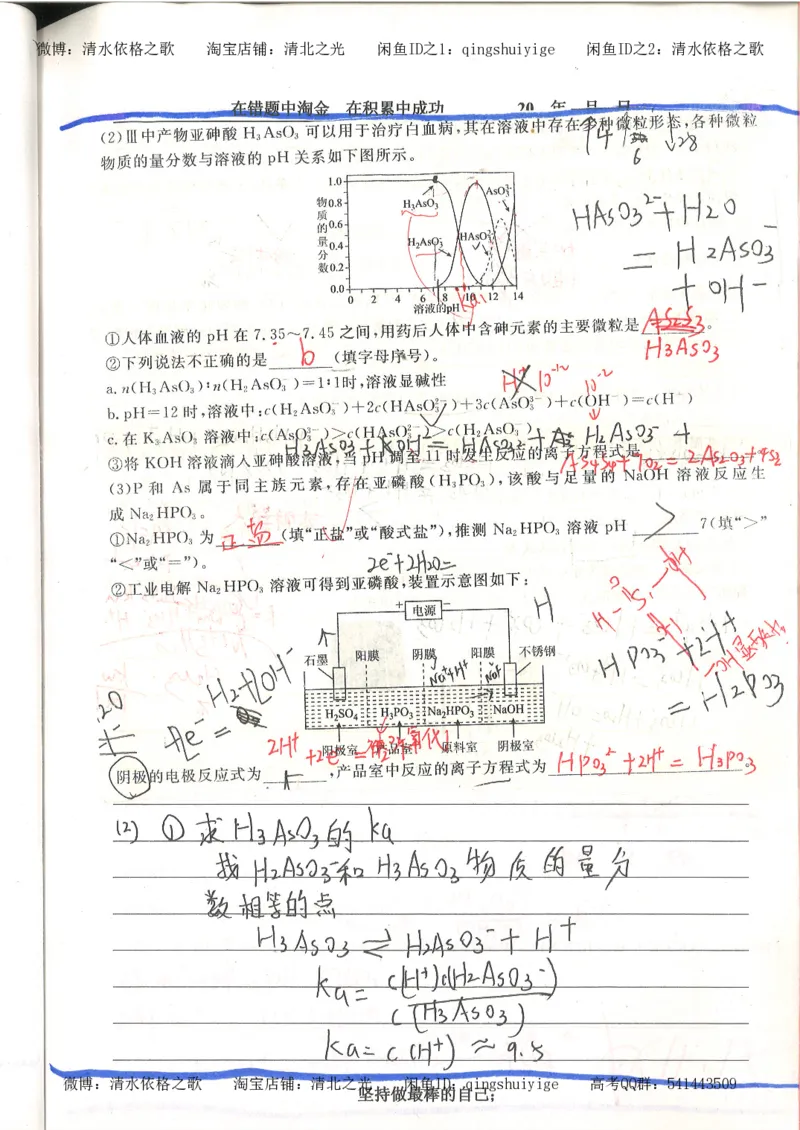 微博：清水依格之歌 淘宝店铺：清北之光 闲鱼ID之1：qingshuiyige 闲鱼ID之2：清水依格之歌
在错题中淘金 在积累中成功 20 年 月 日
(2)Ⅲ中产物亚砷酸 H₃AsO₃ 可以用于治疗白血病,其在溶液中存在多种微粒形态,各种微粒
物质的量分数与溶液的 pH 关系如下图所示。
6
↓28
HAsO3²⁻+H2O
= H2AsO3⁻
+ OH⁻
物质的量分数
1.0
0.8
0.6
0.4
0.2
0.0
H₃AsO₃
H₂AsO₃⁻
HAsO₃²⁻
AsO₃³⁻
0 2 4 6 8 10 12 14
溶液的pH
Ka1
①人体血液的 pH 在 7.35～7.45 之间,用药后人体中含砷元素的主要微粒是 。
H3AsO3
②下列说法不正确的是 b (填字母序号)。
a. n(H₃AsO₃)∶n(H₂AsO₃⁻)=1∶1时,溶液显碱性
H⁺ 10⁻¹² 10⁻²
b. pH=12 时,溶液中:c(H₂AsO₃⁻)+2c(HAsO₃²⁻)+3c(AsO₃³⁻)+c(OH⁻)=c(H⁺)
c. 在 K₃AsO₃ 溶液中:c(AsO₃³⁻)>c(HAsO₃²⁻)>c(H₂AsO₃⁻)
③将 KOH 溶液滴入亚砷酸溶液,当 pH 调至 11 时发生反应的离子方程式是
As4S4+7O2=2As2O3+4SO2
(3)P 和 As 属于同主族元素,存在亚磷酸(H₃PO₃),该酸与足量的 NaOH 溶液反应生
成 Na₂HPO₃。
①Na₂HPO₃ 为 正盐 (填“正盐”或“酸式盐”),推测 Na₂HPO₃ 溶液 pH > 7(填“>”
“<”或“=”)。
2e⁻+2H2O=
②工业电解 Na₂HPO₃ 溶液可得到亚磷酸,装置示意图如下:
+ 电源 −
石墨 阳膜 阴膜 阳膜 不锈钢
H₂SO₄ H₃PO₃ Na₂HPO₃ NaOH
阳极室 产品室 原料室 阴极室
H2+2OH⁻
HPO3 +2H⁺
=H2PO3
2H⁺
阴极的电极反应式为 ,产品室中反应的离子方程式为 HPO3²⁻+2H⁺=H3PO3 。
(2) ① 求H3AsO3的ka
找H2AsO3⁻和H3AsO3物质的量分
数相等的点
H3AsO3 ⇌ H2AsO3⁻+H⁺
ka= c(H⁺)c(H2AsO3⁻)
c(H3AsO3)
ka=c(H⁺)≈9.5
微博：清水依格之歌 淘宝店铺：清北之光 闲鱼ID：qingshuiyige 高考QQ群：541443509
坚持做最棒的自己;